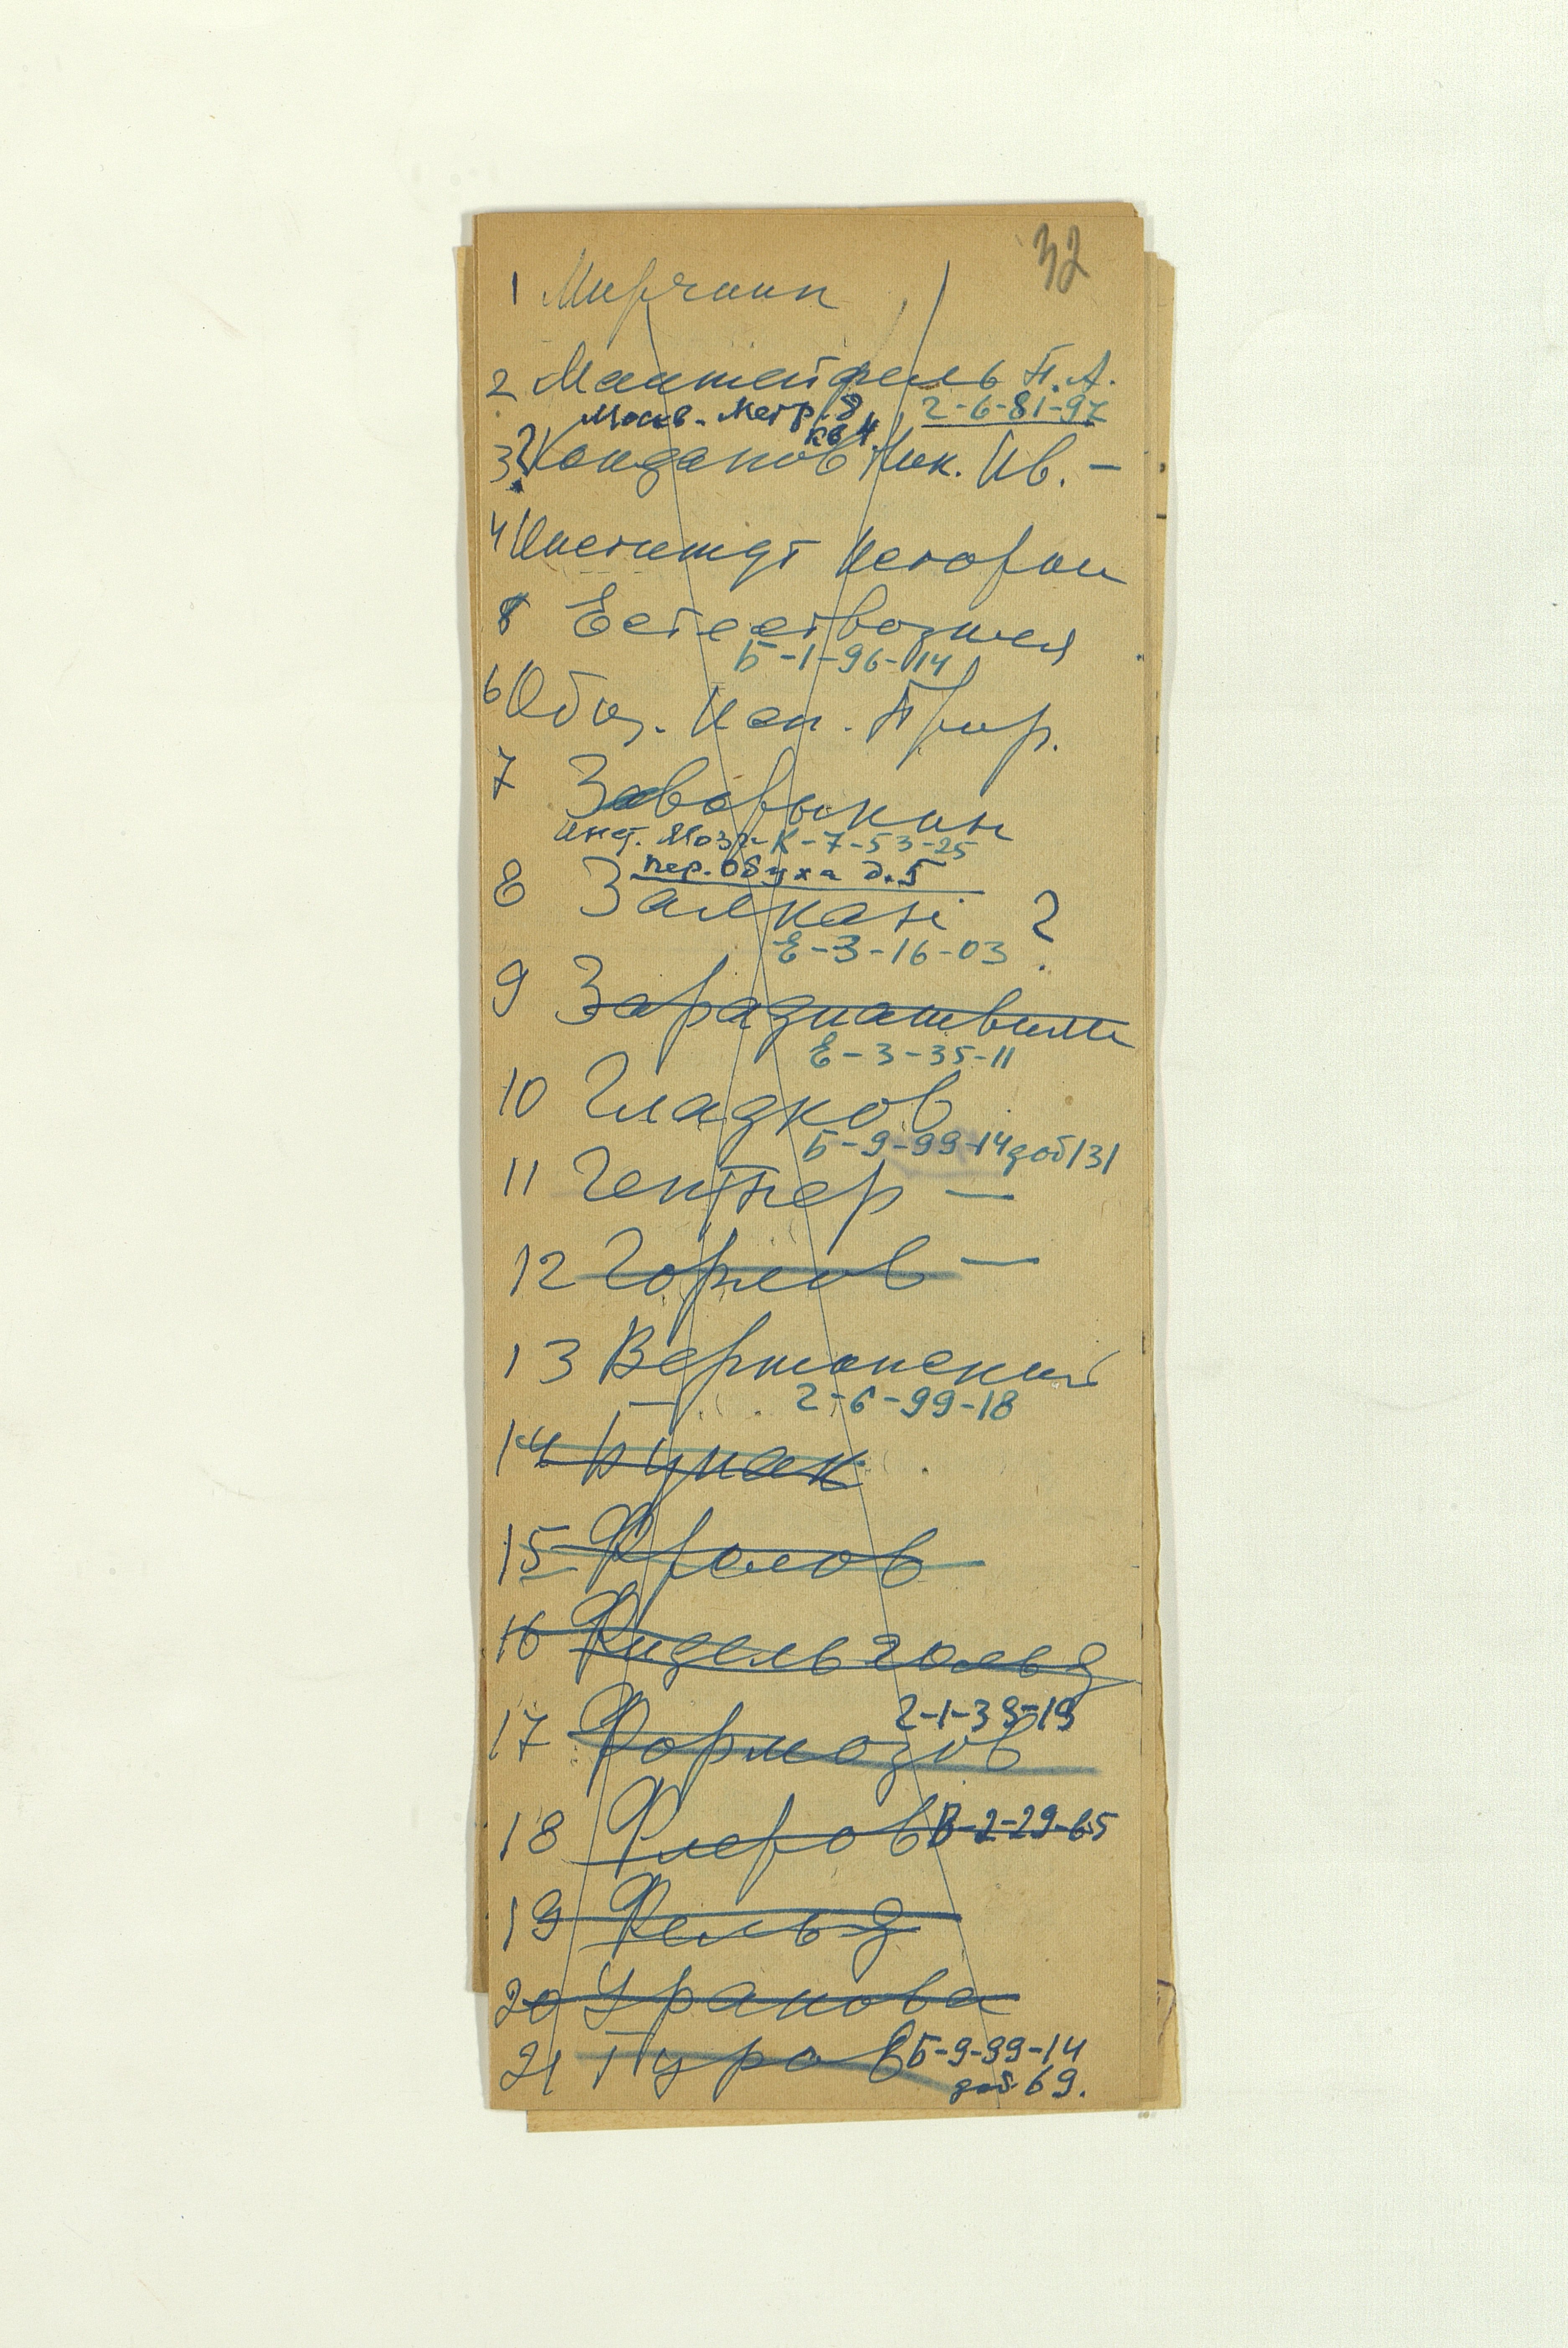 32
1 Мирчинк
2 Мантейфель П. А.
Моск. Метр. 8 2-6-81-97
кв 4.
3 ? Кондаков Ник. Ив. –
4 Институт Истории
5 Естествозния
Б-1-96-14
6 Общ. Исп. Прир.
7 Заворыкин
Инст. Мозг. К-7-53-25
пер. Обуха д. 5
8 Залкан ?
Е-3-16-03
9 Зарадиашвили
Е-3-35-11
10 Гладков
Б-9-99-14 доб 131
11 Гептнер –
12 Горлов –
13 Верманский
2-6-99-18
14 Бунак
15 Фролов
16 Фидельгольд
2-1-39-19
17 Формозов
18 Флеров В-2-29-65
19 Фельд
20 Уранова
21 Гуров Б-9-99-14
доб 69.